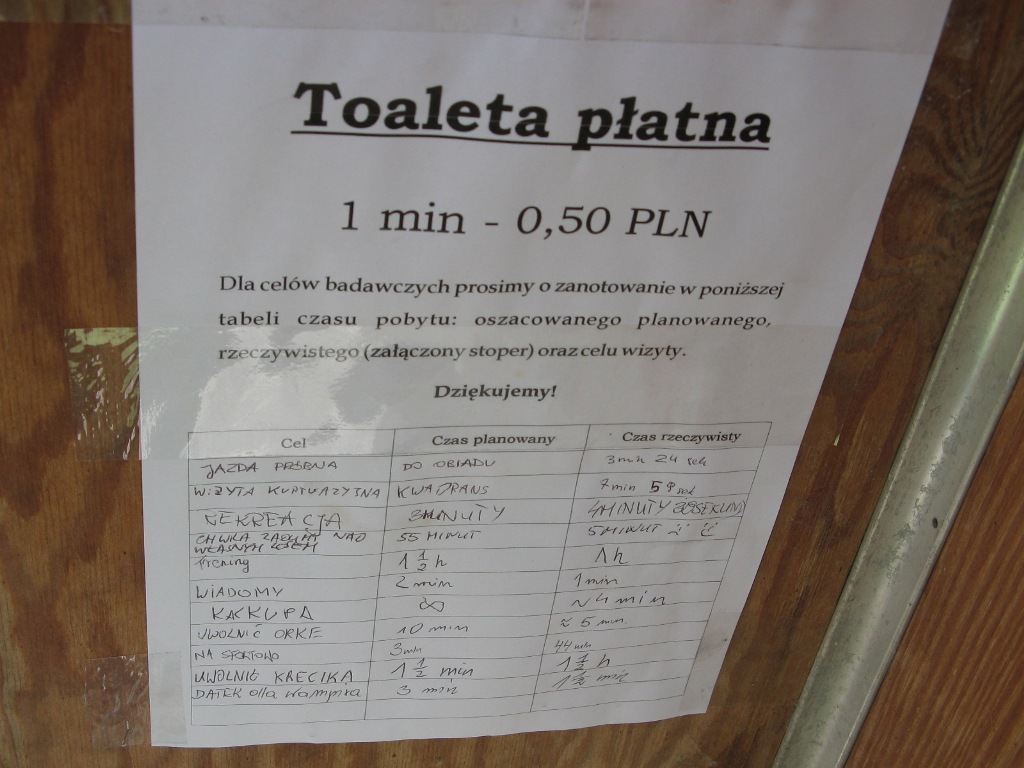 Toaleta płatna
1 min - 0,50 PLN
Dla celów badawczych prosimy o zanotowanie w poniższej
tabeli czasu pobytu: oszacowanego planowanego,
rzeczywistego (załączony stoper) oraz celu wizyty.
Dziękujemy!
Cel Czas planowany Czas rzeczywisty
JAZDA PRÓBNA DO OBIADU 3 min 24 sek
WIZYTA KURTUAZYJNA KWADRANS 7 min 59 sek
3 MINUTY 4 MINUTY SEKUND
CHWILA ZADUMY NAD 55 MINUT 5 MINUT
WŁASNYM
Trening 1 1/2 h 1 h
WIADOMY 2 min 1 min
KAKKUPA ∞ ~ 4 min
UWOLNIĆ ORKĘ 10 min ≈ 5 min
NA SPORTOWO 3 min 44 min
UWOLNIĆ KRECIKA 1 1/2 min 1 1/2 h
DATEK dla wampira 3 min 1 1/2 min